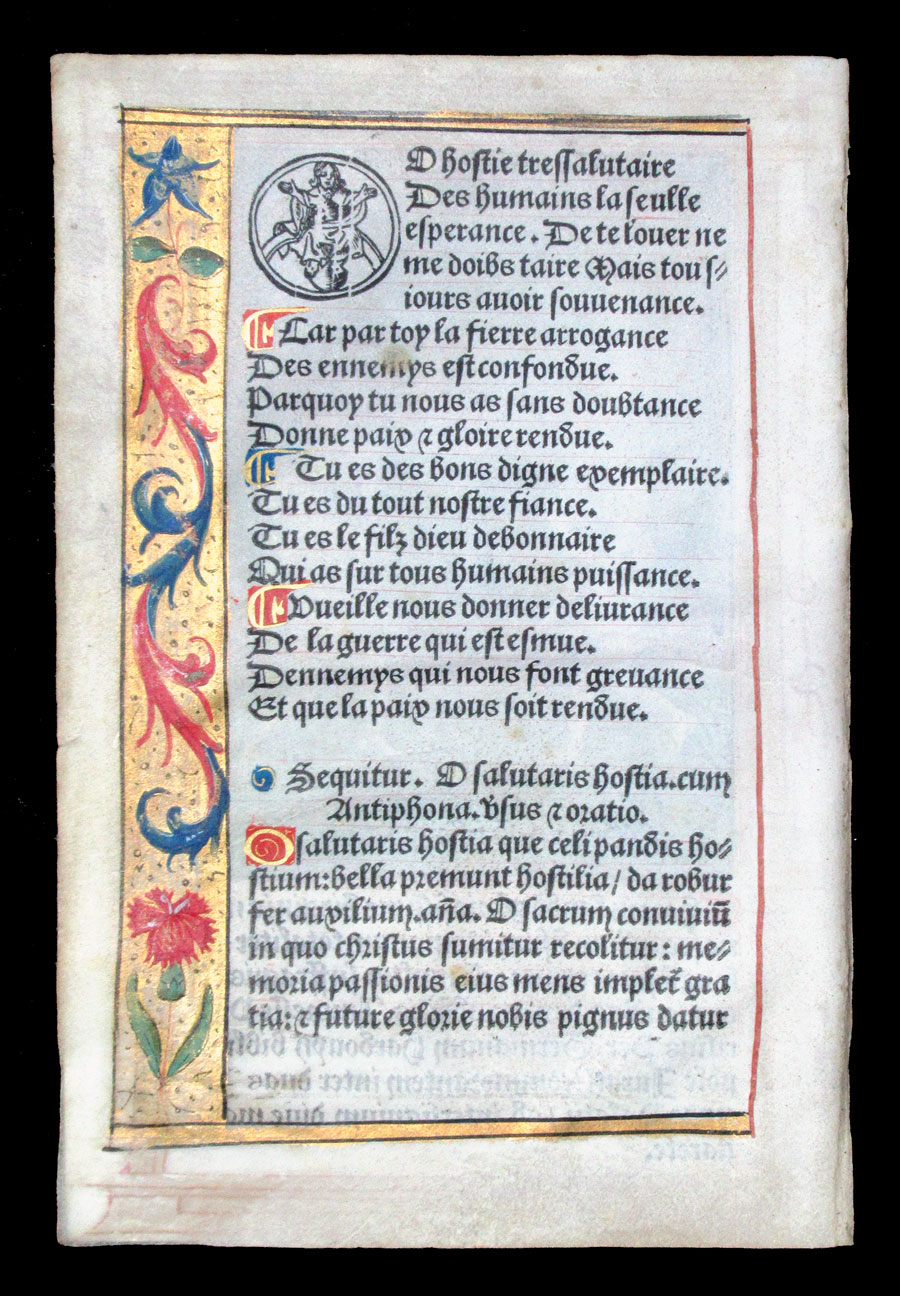 O hostie tressalutaire
Des humains la seulle
esperance. De te louer ne
me doibs taire Mais tous⸗
iours auoir souuenance.
Car par toy la fierre arrogance
Des ennemys est confondue.
Parquoy tu nous as sans doubtance
Donne paix ⁊ gloire rendue.
Tu es des bons digne exemplaire.
Tu es du tout nostre fiance.
Tu es le filz dieu debonnaire
Qui as sur tous humains puissance.
Vueille nous donner deliurance
De la guerre qui est esmue.
Dennemys qui nous font greuance
Et que la paix nous soit rendue.
Sequitur. O salutaris hostia. cum
Antiphona. v̄sus ⁊ oratio.
O salutaris hostia que celi pandis ho⸗
stium: bella premunt hostilia/ da robur
fer auxilium. an̄a. O sacrum conuiuiū
in quo christus sumitur recolitur: me⸗
moria passionis eius mens implet̄ gra
tia: ⁊ future glorie nobis pignus datur